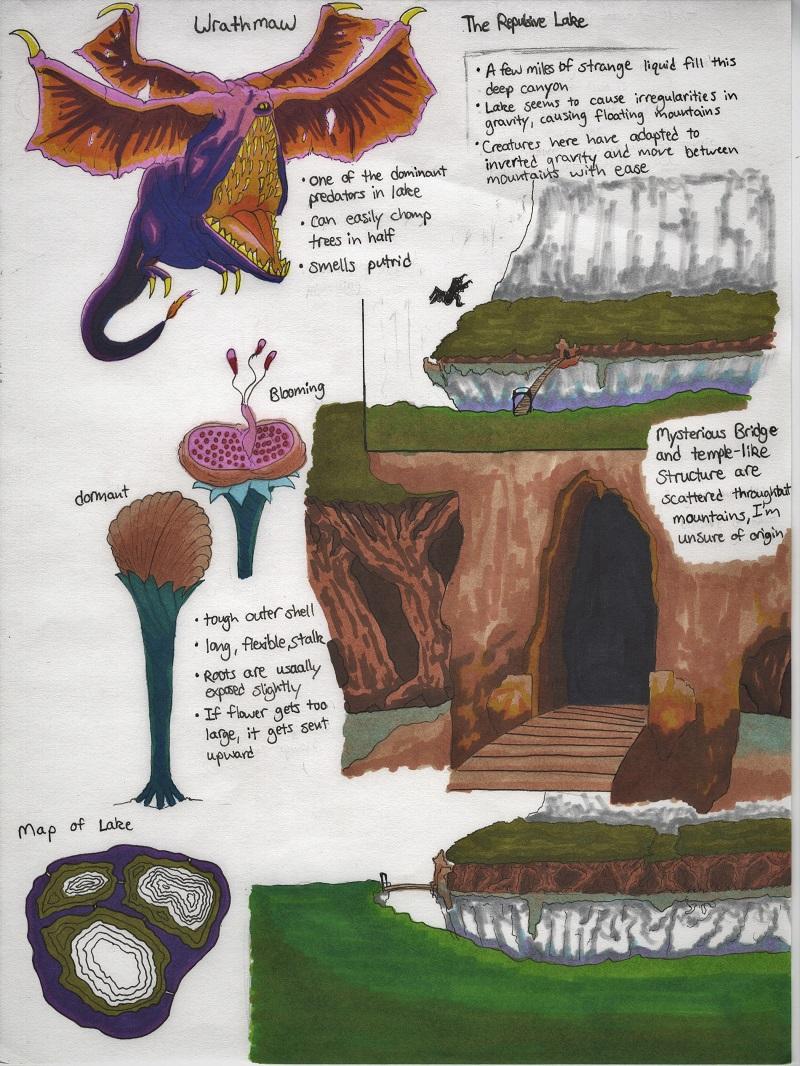 Wrathmaw
The Repulsive Lake
• A few miles of strange liquid fill this
deep canyon
• Lake seems to cause irregularities in
gravity, causing floating mountains
• Creatures here have adapted to
inverted gravity and move between
mountains with ease
• one of the dominant
predators in lake
• can easily chomp
trees in half
• smells putrid
Blooming
dormant
Mysterious Bridge
and temple-like
Structure are
scattered throughout
mountains, I'm
unsure of origin
• tough outer shell
• long, flexible stalk
• Roots are usually
exposed slightly
• If flower gets too
large, it gets sent
upward
Map of Lake